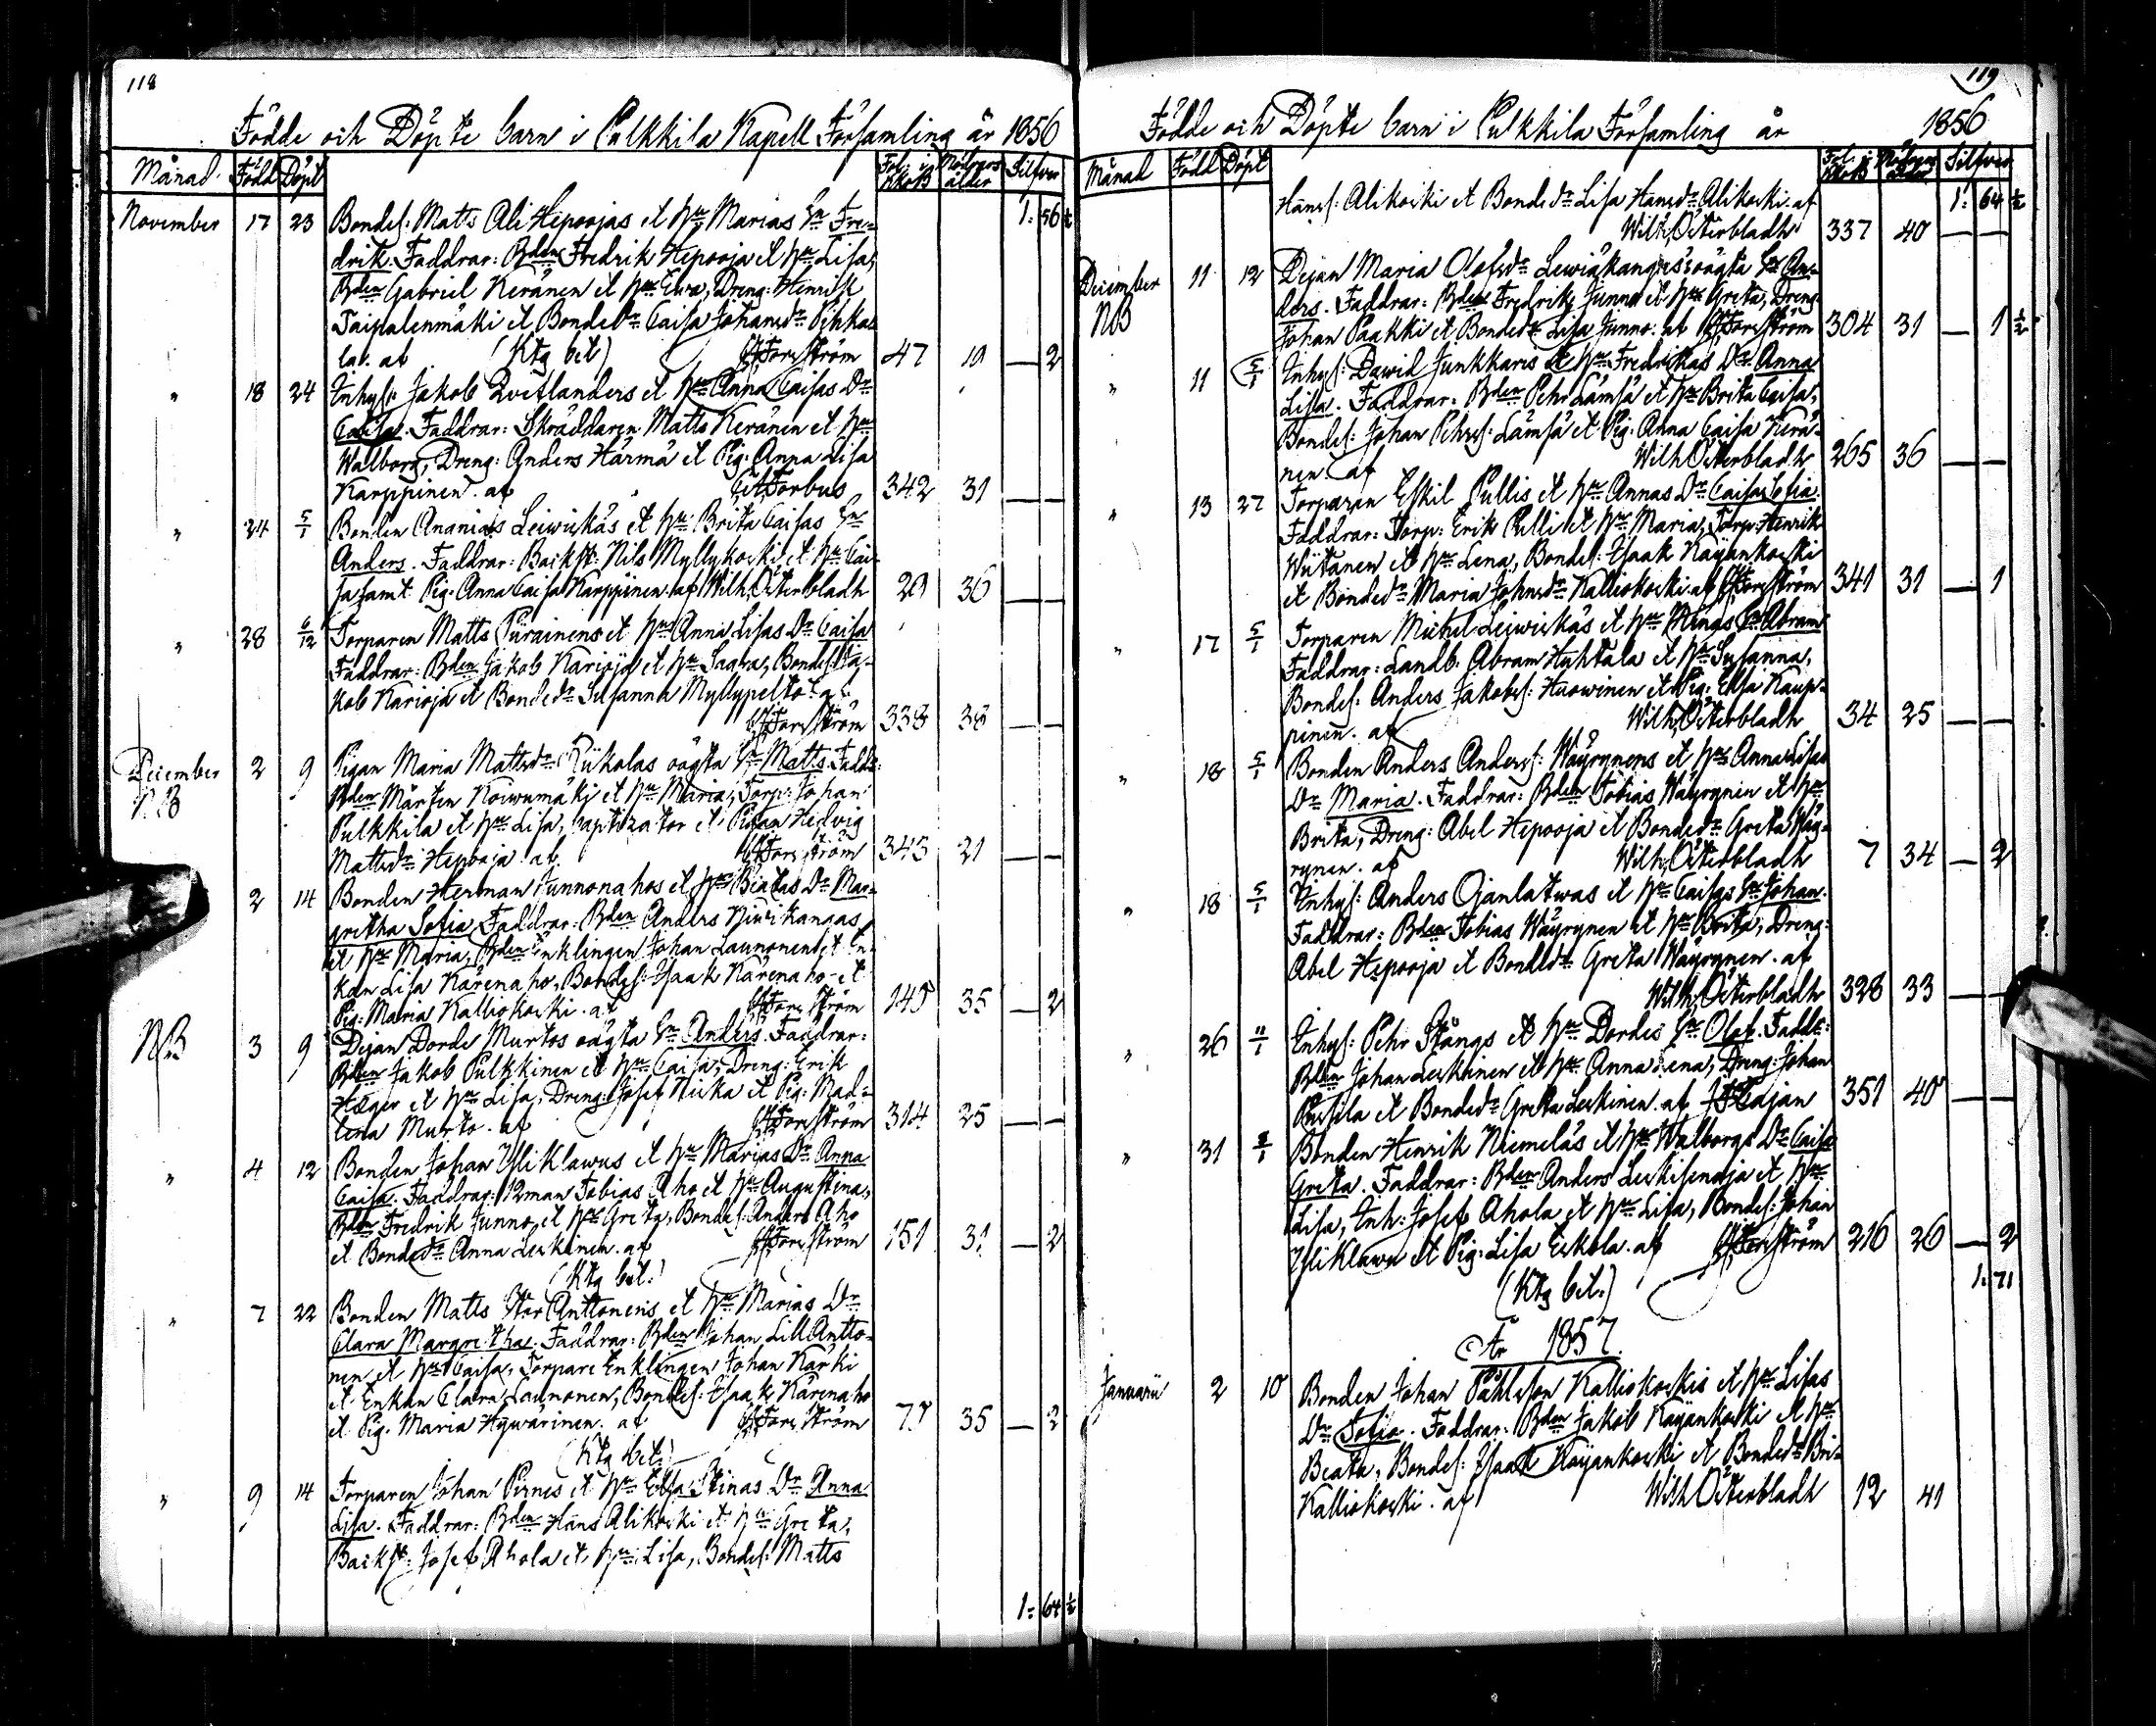 118
Födde och Döpte barn i Pulkkila Kapell Församling år 1856
Månad Född Döpt Fol. i Moderns ålder Silfver
November 17 23 Bondes: Matts Ali Hepoojas et Hu Marias Sn Fre- 1: 56 ½
drik. Faddrar: Bden Fredrik Hepooja et Hu Lisa,
Bden Gabriel Keränen et Hu Ewa, Dreng: Henrik
Taipalenmäki et Bondedr Caisa Johansdr Pihka-
la. af (Ktg bet) Forsström 47 19 — 2
" 18 24 Inhys: Jakob Qvetlanders et Hu Anna Caisas Dr
Caisa. Faddrar: Skräddaren Matts Keränen et Hu
Walborg, Dreng: Anders Härmä et Pig: Anna Lisa
Karppinen. af Forbus 342 31 — —
" 24 5/1 Bonden Ananias Leiwiskäs et Hu Brita Caisas Sn
Anders. Faddrar: Backst: Nils Myllykoski et Hu Cai-
sa samt Pig. Anna Caisa Karppinen. af Wilh. Österbladh 29 36 — —
" 28 6/12 Torparen Matts Piirainens et Hu Anna Lisas Dr Caisa
Faddrar: Bden Jakob Karioja et Hu Saara, Bondes: Ja-
kob Karioja et Bondedr Susanna Myllypelto. af
Forsström 338 38 — —
December 2 9 Pigan Maria Mattsdr Kukolas oägta Sn Matts. Faddr:
NB Bden Mårten Koiwumäki et Hu Maria, Torp: Johan
Pulkkila et Hu Lisa, baptizator et Pigan Hedvig
Mattsdr Hepooja. af Forsström 343 21 — —
2 14 Bonden Herman Junnonahos et Hu Beatas Dr Mar-
gretha Sofia. Faddrar: Bden Anders Niurikangas
et Hu Maria, Bden Enklingen Johan Launonen et En-
kan Lisa Kärenaho, Bondes: Isaak Kärenaho et
Pig: Maria Kalliokoski. af Forsström 145 35 — 2
NB 3 9 Dejan Dorde Murtos oägta Sn Anders. Faddrar:
Bden Jakob Pulkkinen et Hu Caisa, Dreng: Erik
Hæger et Hu Lisa, Dreng: Josef Niska et Pig: Mad-
lena Murto. af Forsström 314 25 — —
" 4 12 Bonden Johan YliKlawus et Hu Marias Dr Anna
Caisa. Faddrar: 12man Tobias Aho et Hu Augustina,
Bden Fredrik Junno et Hu Greta, Bondes: Anders Aho
et Bondedr Anna Leskinen. af Forsström 151 31 — 2
(Ktg bet.)
" 7 22 Bonden Matts Stor Anttonens et Hu Marias Dr
Clara Margretha. Faddrar: Bden Johan Lill Antto-
nen et Hu Caisa, Torpare Enklingen Johan Kärki
et Enkan Clara Launonen, Bondes: Isaak Kärenaho
et Pig. Maria Hywärinen. af Forsström 77 35 — 2
(Ktg bet.)
" 9 14 Torparen Johan Pirnes et Hu Elsa Stinas Dr Anna
Lisa. Faddrar: Bden Hans Alikoski et Hu Greta,
Backst: Josef Ahola et Hu Lisa, Bondes: Matts
1: 64 ½
119
Födde och Döpte barn i Pulkkila Församling år 1856
Månad Född Döpt Fol. i Moderns ålder Silfver
Hanss: Alikoski et Bondedr Lisa Hansdr Alikoski. af 1: 64 ½
Wilh. Österbladh 337 40 — —
December 11 12 Dejan Maria Olofsdr Lewiäkangas's oägta Sn An-
NB ders. Faddrar: Bden Fredrik Junno et Hu Greta, Dreng
Johan Paakki et Bondedr Lisa Junno. af Forsström 304 31 — 1 ½
" 11 5/1 Inhys: Dawid Junkkaris et Hu Fredrikas Dr Anna
Lisa. Faddrar: Bden Pehr Lämsä et Hu Brita Caisa,
Bondes: Johan Pehrs: Lämsä et Pig. Anna Caisa Kerä-
nen. af Wilh Österbladh 265 36 — —
" 13 27 Torparen Eskil Pullis et Hu Annas Dr Caisa Sofia.
Faddrar: Torp: Erik Pulli et Hu Maria, Torp: Henrik
Wiitanen et Hu Lena, Bondes: Isaak Käyänkoski
et Bondedr Maria Johnsdr Kalliokoski. af Forsström 341 31 — 1
" 17 5/1 Torparen Michel Leiwiskäs et Hu Sn Abram
Faddrar: Landb. Abram Huhtala et Hu Susanna,
Bondes: Anders Jakobs: Huowinen et Pig: Elsa Kaup-
pinen. af Wilh. Österbladh 34 25 — —
" 18 5/1 Bonden Anders Anders: Wäyrynens et Hu Anna Lisas
Dr Maria. Faddrar: Bden Tobias Wäyrynen et Hu
Brita, Dreng: Abel Hepooja et Bondedr Greta Wäy-
rynen. af Wilh. Österbladh 7 34 — 2
" 18 5/1 Inhys: Anders Ojanlatwas et Hu Caisas Sn Johan.
Faddrar: Bden Tobias Wäyrynen et Hu Brita, Dreng:
Abel Hepooja et Bondedr Greta Wäyrynen. af
Wilh. Österbladh 328 33 — —
" 26 11/1 Inhys: Pehr Stångs et Hu Dordes Sn Olof. Faddr:
Bden Johan Leskinen et Hu Anna Lena, Dreng: Johan
et Bondedr Greta Leskinen. af Cajan 351 40 — —
" 31 /1 Bonden Henrik Niemeläs et Hu Walborgs Dr Caisa
Greta. Faddrar: Bden Anders Leskisenoja et Hu
Lisa, Inh: Josef Ahola et Hu Lisa, Bondes: Johan
YliKlawu et Pig: Lisa Eskola. af Forsström 216 26 — 2
(Ktg bet.) 1: 71
År 1857.
Januarii 2 10 Bonden Johan Påhlsson Kalliokoskis et Hu Lisas
Dr Sofia. Faddrar: Bden Jakob Käyänkoski et Hu
Beata, Bondes: Isaak Käyänkoski et Bondedr Bri-
Kalliokoski. af Wilh Österbladh 12 41